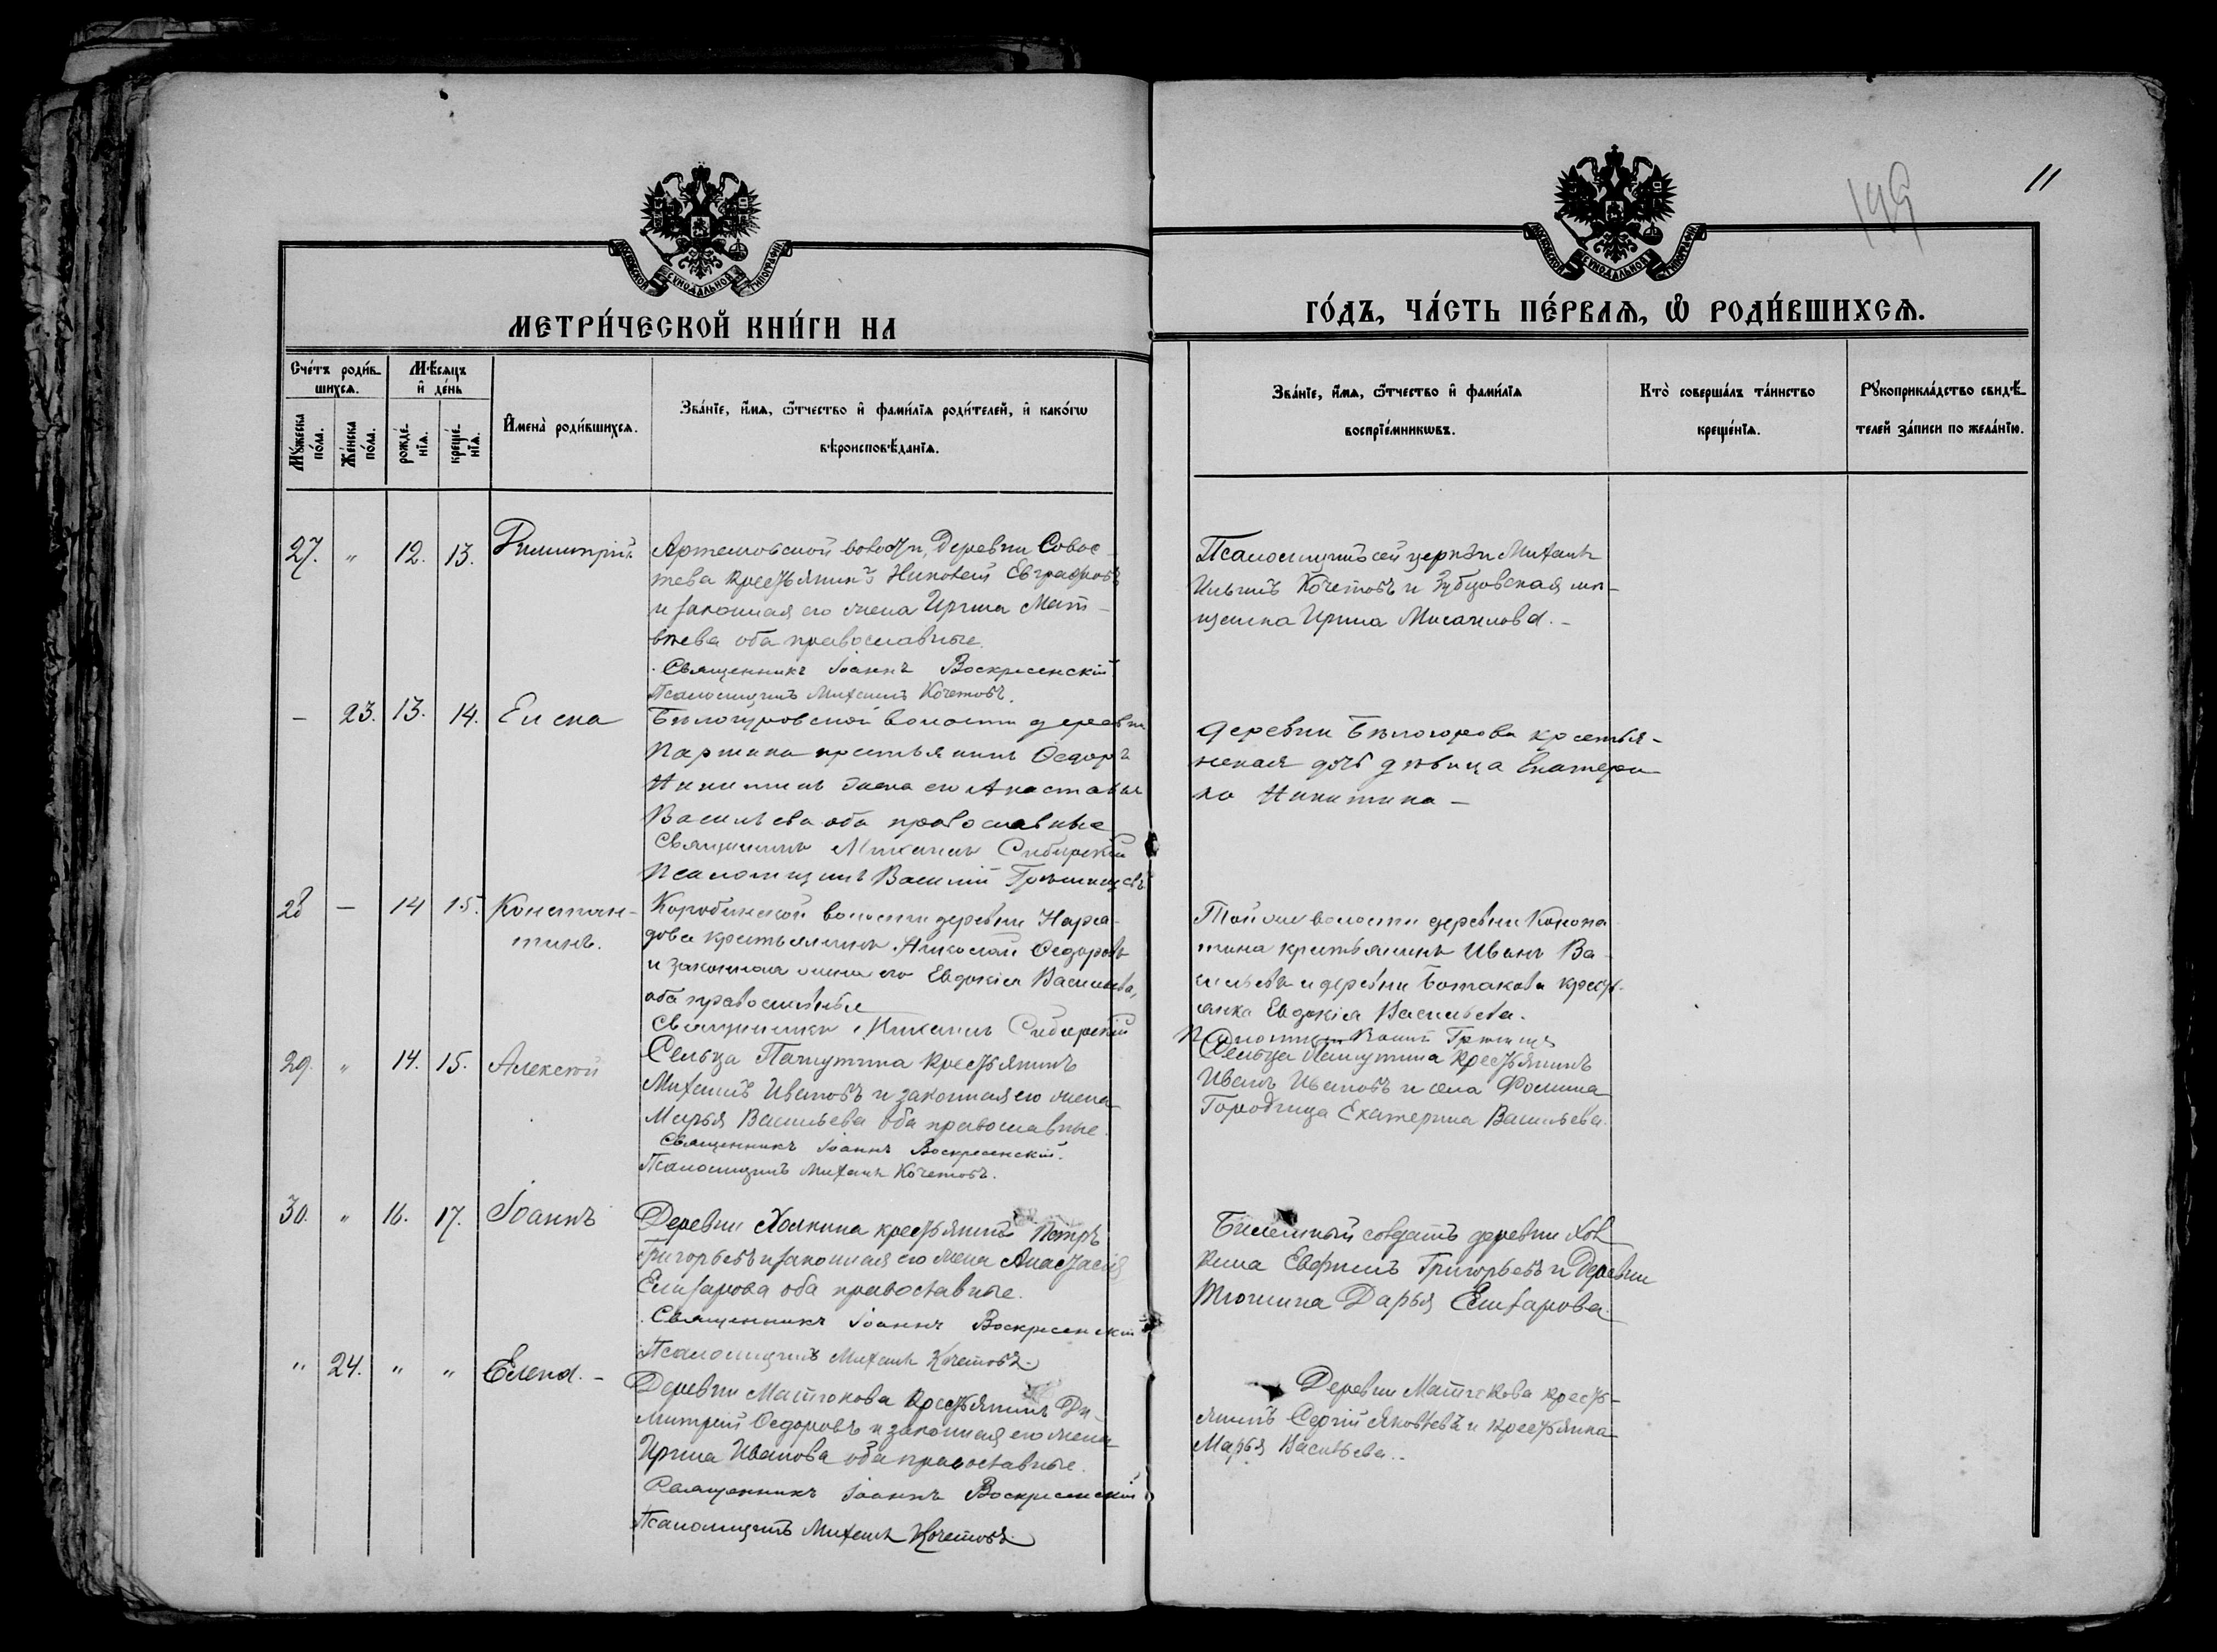 199
11
МЕТРИ́ЧЕСКОЙ КНИ́ГИ НА
ГО́ДЪ, ЧА́СТЬ ПЕ́РВАѦ, Ѽ РОДИ́ВШИХСѦ.
МОСКОВСКОЙ СѴНОДАЛЬНОЙ ТИПОГРАФІИ
МОСКОВСКОЙ СѴНОДАЛЬНОЙ ТИПОГРАФІИ
Сче́тъ роди́в-
шихсѧ.
Мѣ́сѧцъ
и҆ де́нь
Мꙋ́жеска по́ла.
Же́нска по́ла.
рожде́-нїѧ.
креще́-нїѧ.
И҆мена̀ роди́вшихсѧ.
Зва́нїе, и҆́мѧ, ѻ҆́тчество и҆ фами́лїѧ роди́телей, и҆ како́гѡ
вѣроисповѣ́данїѧ.
Зва́нїе, и҆́мѧ, ѻ҆́тчество и҆ фами́лїѧ
воспрїе́мникѡвъ.
Кто̀ соверша́лъ та́инство
креще́нїѧ.
Рꙋкоприкла́дство свидѣ́-
телей за́писи по жела́нїю.
27. " 12. 13. Димитрій.
Артемовской волости, Деревни Совос-
това крестьянинъ Николай Евграфовъ
и законная его жена Ирина Мат-
вѣева оба православные.
Священникъ Іоаннъ Воскресенскій
Псаломщикъ Михаилъ Кочетовъ.
Псаломщикъ сей церкви Михаилъ
Ильинъ Кочетовъ и Зубцовская мѣ-
щанка Ирина
— 23. 13. 14. Елена
Бѣлогуровской волости деревни
Паршина крестьянинъ Ѳеодоръ
Никитинъ жена его Анастасія
Васильева оба православные
Священникъ Михаилъ Сибирскій
Псаломщикъ Василій
деревни крестья-
нская дочь дѣвица Екатери-
на Никитина —
28 — 14 15. Констан-
тинъ.
Коробинской волости деревни
крестьянинъ Николай Ѳеодоровъ
и законная жена его Евдокія Васильева,
оба православные
Священникъ Михаилъ Сибирскій
Той же волости деревни Конопа-
тина крестьянинъ Иванъ Ва-
сильевъ и деревни крестья-
янка Евдокія Васильева.
Псаломщ Васил
29. " 14. 15. Алексей
Сельца Пашутина крестьянинъ
Михаилъ Ивановъ и законная его жена
Марья Васильева оба православные.
Священникъ Іоаннъ Воскресенскій.
Псаломщикъ Михаилъ Кочетовъ.
Сельца Пашутина крестьянинъ
Иванъ Ивановъ и села Фомина
Городища Екатерина Васильева.
30. " 16. 17. Іоаннъ
Деревни Холкина крестьянинъ Петръ
Григорьевъ и законная его жена Анастасія
Елизарова оба православные.
Священникъ Іоаннъ Воскресенскій
Псаломщикъ Михаилъ Кочетовъ.
Билетный солдатъ деревни Хол-
кина Евфимъ Григорьевъ и Деревни
Дарья Елизарова.
" 24. " " Елена. —
Деревни Матюкова крестьянинъ Ди-
митрій Ѳеодоровъ и законная его жена
Ирина Иванова оба православные.
Священникъ Іоаннъ Воскресенскій
Псаломщикъ Михаилъ Кочетовъ.
Деревни Матюкова кресть-
янинъ Сергій Яковлевъ и крестьянка
Марья Васильева.